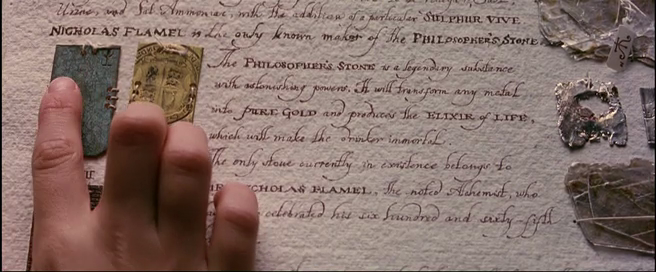 Urine, and Sal Ammoniac, with the addition of a particular SULPHUR VIVE
NICHOLAS FLAMEL is the only known maker of the PHILOSOPHER'S STONE.
The PHILOSOPHER'S STONE is a legendary substance
with astonishing powers. It will transform any metal
into PURE GOLD and produces the ELIXIR of LIFE,
which will make the drinker immortal.
The only stone currently in existence belongs to
NICHOLAS FLAMEL, the noted Alchemist, who
celebrated his six hundred and sixty-fifth